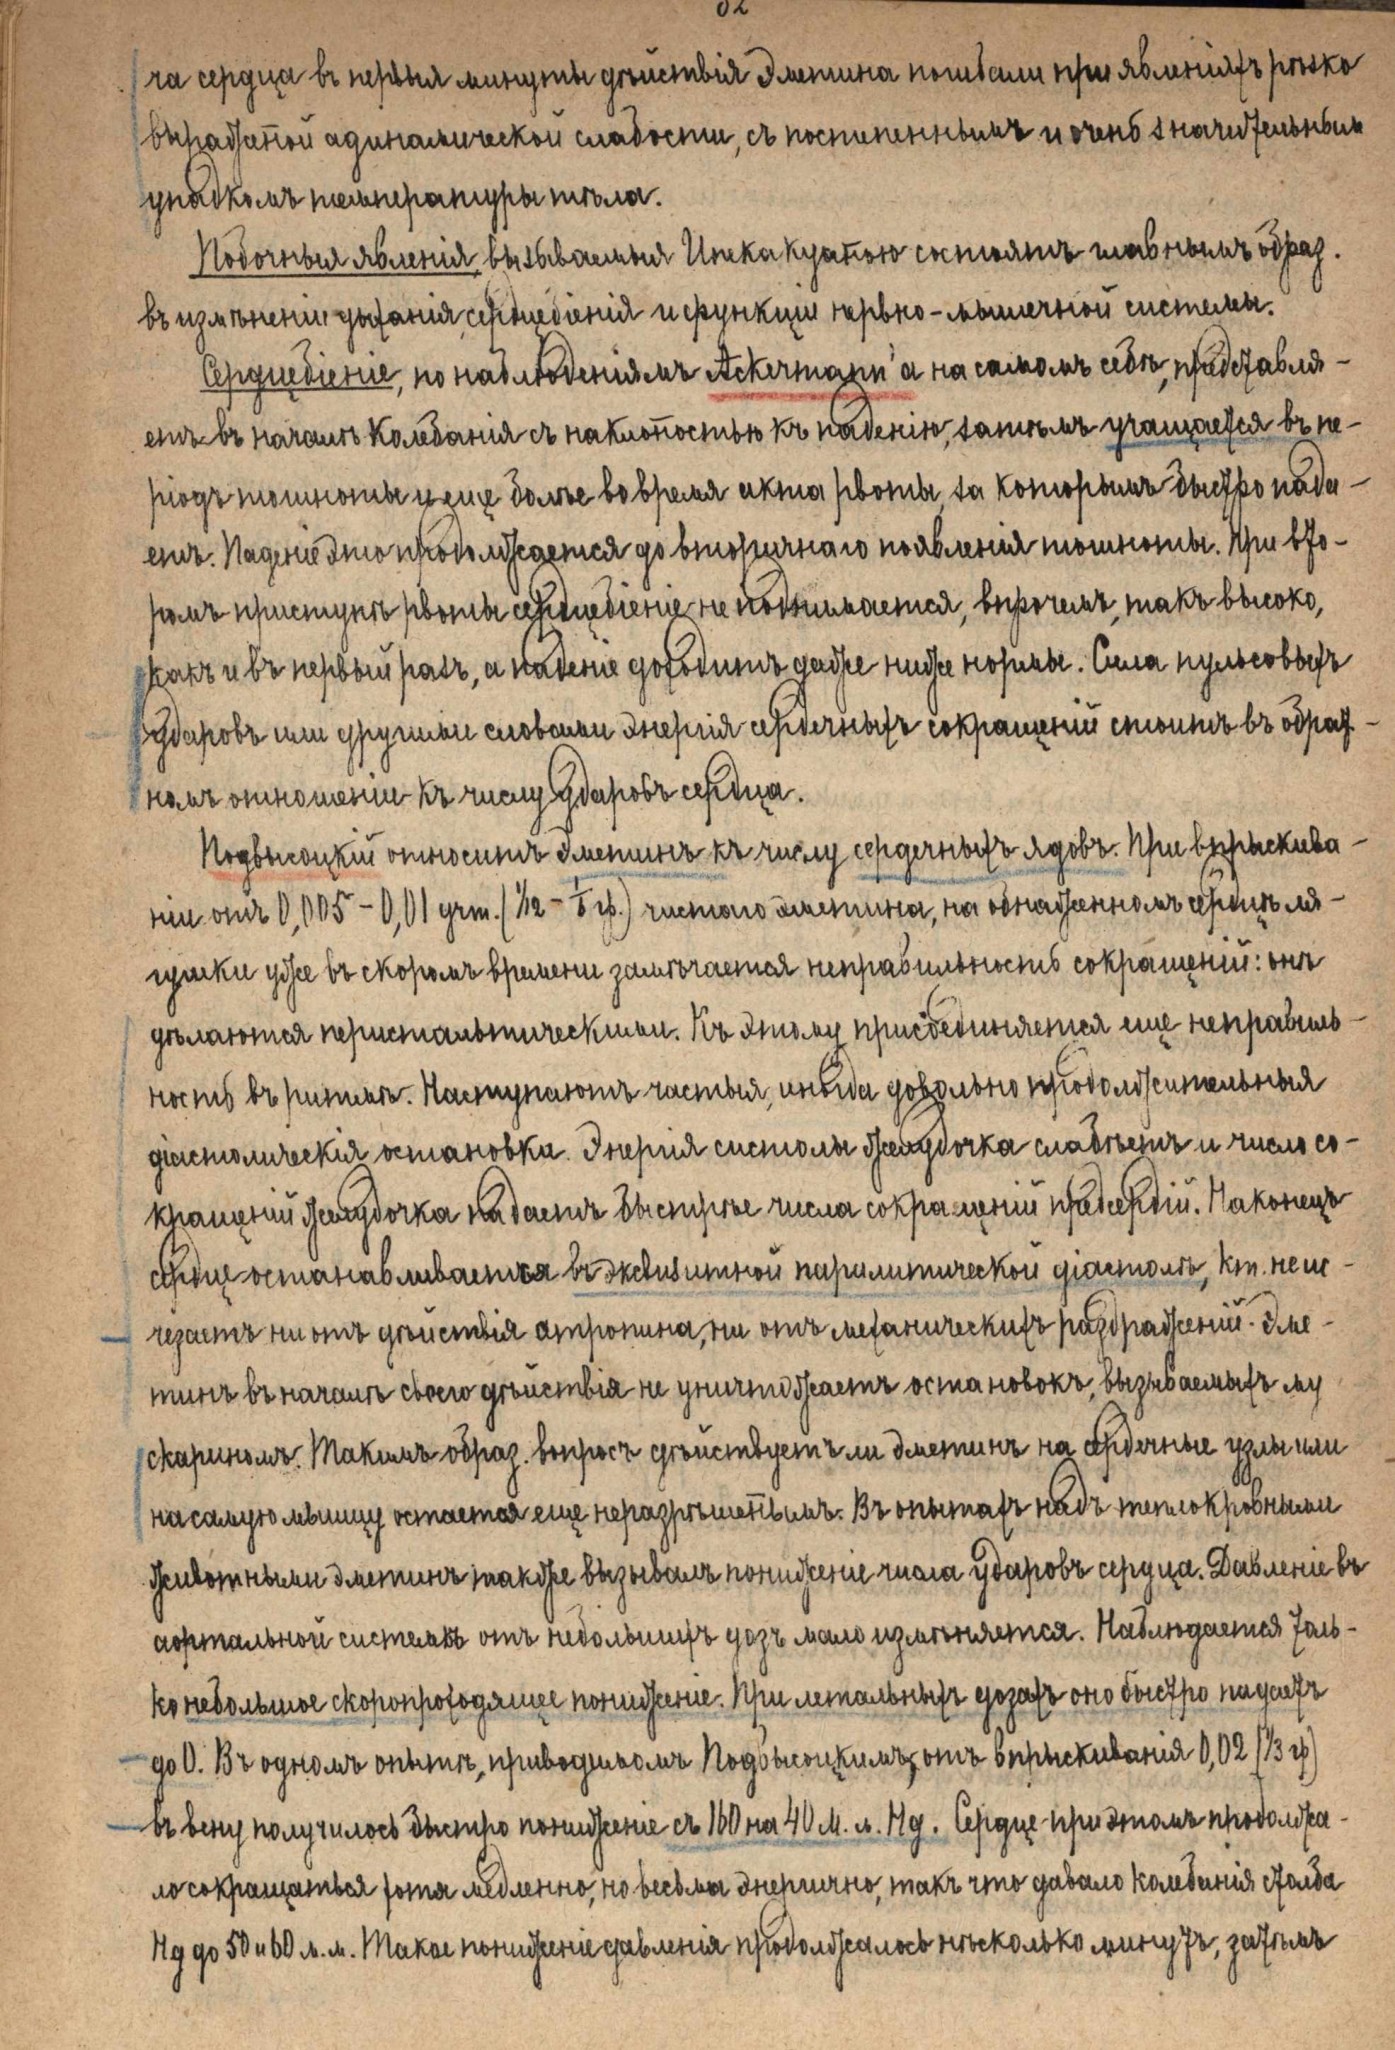 82
ча сердца въ первыя минуты дѣйствія Эметина погибали при явленіяхъ рѣзко
выраженной адинамической слабости, съ постепеннымъ и очень значительнымъ
упадкомъ температуры тѣла.
Побочныя явленія, вызываемыя Ипекакуаною состоятъ главнымъ образ.
въ измѣненіи дыханія, сердцебіенія и функціи нервно-мышечной системы.
Сердцебіеніе, по наблюденіямъ Ackermann'а на самомъ себѣ, представля-
етъ въ началѣ колебанія съ наклонностью къ паденію, затѣмъ учащается въ пе-
ріодъ тошноты и еще болѣе во время акта рвоты, за которымъ быстро пада-
етъ. Паденіе это продолжается до вторичнаго появленія тошноты. При вто-
ромъ приступѣ рвоты сердцебіеніе не поднимается, впрочемъ, такъ высоко,
какъ и въ первый разъ, а паденіе доходитъ даже ниже нормы. Сила пульсовыхъ
ударовъ или другими словами энергія сердечныхъ сокращеній стоитъ въ обрат-
номъ отношеніи къ числу ударовъ сердца.
Подвысоцкій относитъ Эметинъ къ числу сердечныхъ ядовъ. При впрыскива-
ніи отъ 0,005 – 0,01 grm. (1/12 – 1/6 гр.) чистаго эметина, на обнаженномъ сердцѣ ля-
гушки уже въ скоромъ времени замѣчается неправильность сокращеній: онѣ
дѣлаются перистальтическими. Къ этому присоединяется еще неправиль-
ность въ ритмѣ. Наступаютъ частыя, иногда довольно продолжительныя
діастолическія остановки. Энергія систолы желудочка слабѣетъ и число со-
кращеній желудочка падаетъ быстрѣе числа сокращеній предсердій. Наконецъ
сердце останавливается въ эксвизитной паралитической діастолѣ, кт. не ис-
чезаетъ ни отъ дѣйствія атропина, ни отъ механическихъ раздраженій. Эме-
тинъ въ началѣ своего дѣйствія не уничтожаетъ остановокъ, вызываемыхъ му
скариномъ. Такимъ образ. вопросъ дѣйствуетъ ли эметинъ на сердечные узлы или
на самую мышцу остается еще неразрѣшеннымъ. Въ опытахъ надъ теплокровными
животными эметинъ также вызывалъ пониженіе числа ударовъ сердца. Давленіе въ
аортальной системѣ отъ небольшихъ дозъ мало измѣняется. Наблюдается толь-
ко небольшое скоропроходящее пониженіе. При летальныхъ дозахъ оно быстро падаетъ
до 0. Въ одномъ опытѣ, приводимомъ Подвысоцкимъ, отъ впрыскиванія 0,02 (1/3 гр)
въ вену получилось быстро пониженіе съ 160 на 40 м. м. Hg. Сердце при этомъ продолжа-
ло сокращаться хотя медленно, но весьма энергично, такъ что давало колебанія столба
Hg до 50 и 60 м. м. Такое пониженіе давленія продолжалось нѣсколько минутъ, затѣмъ